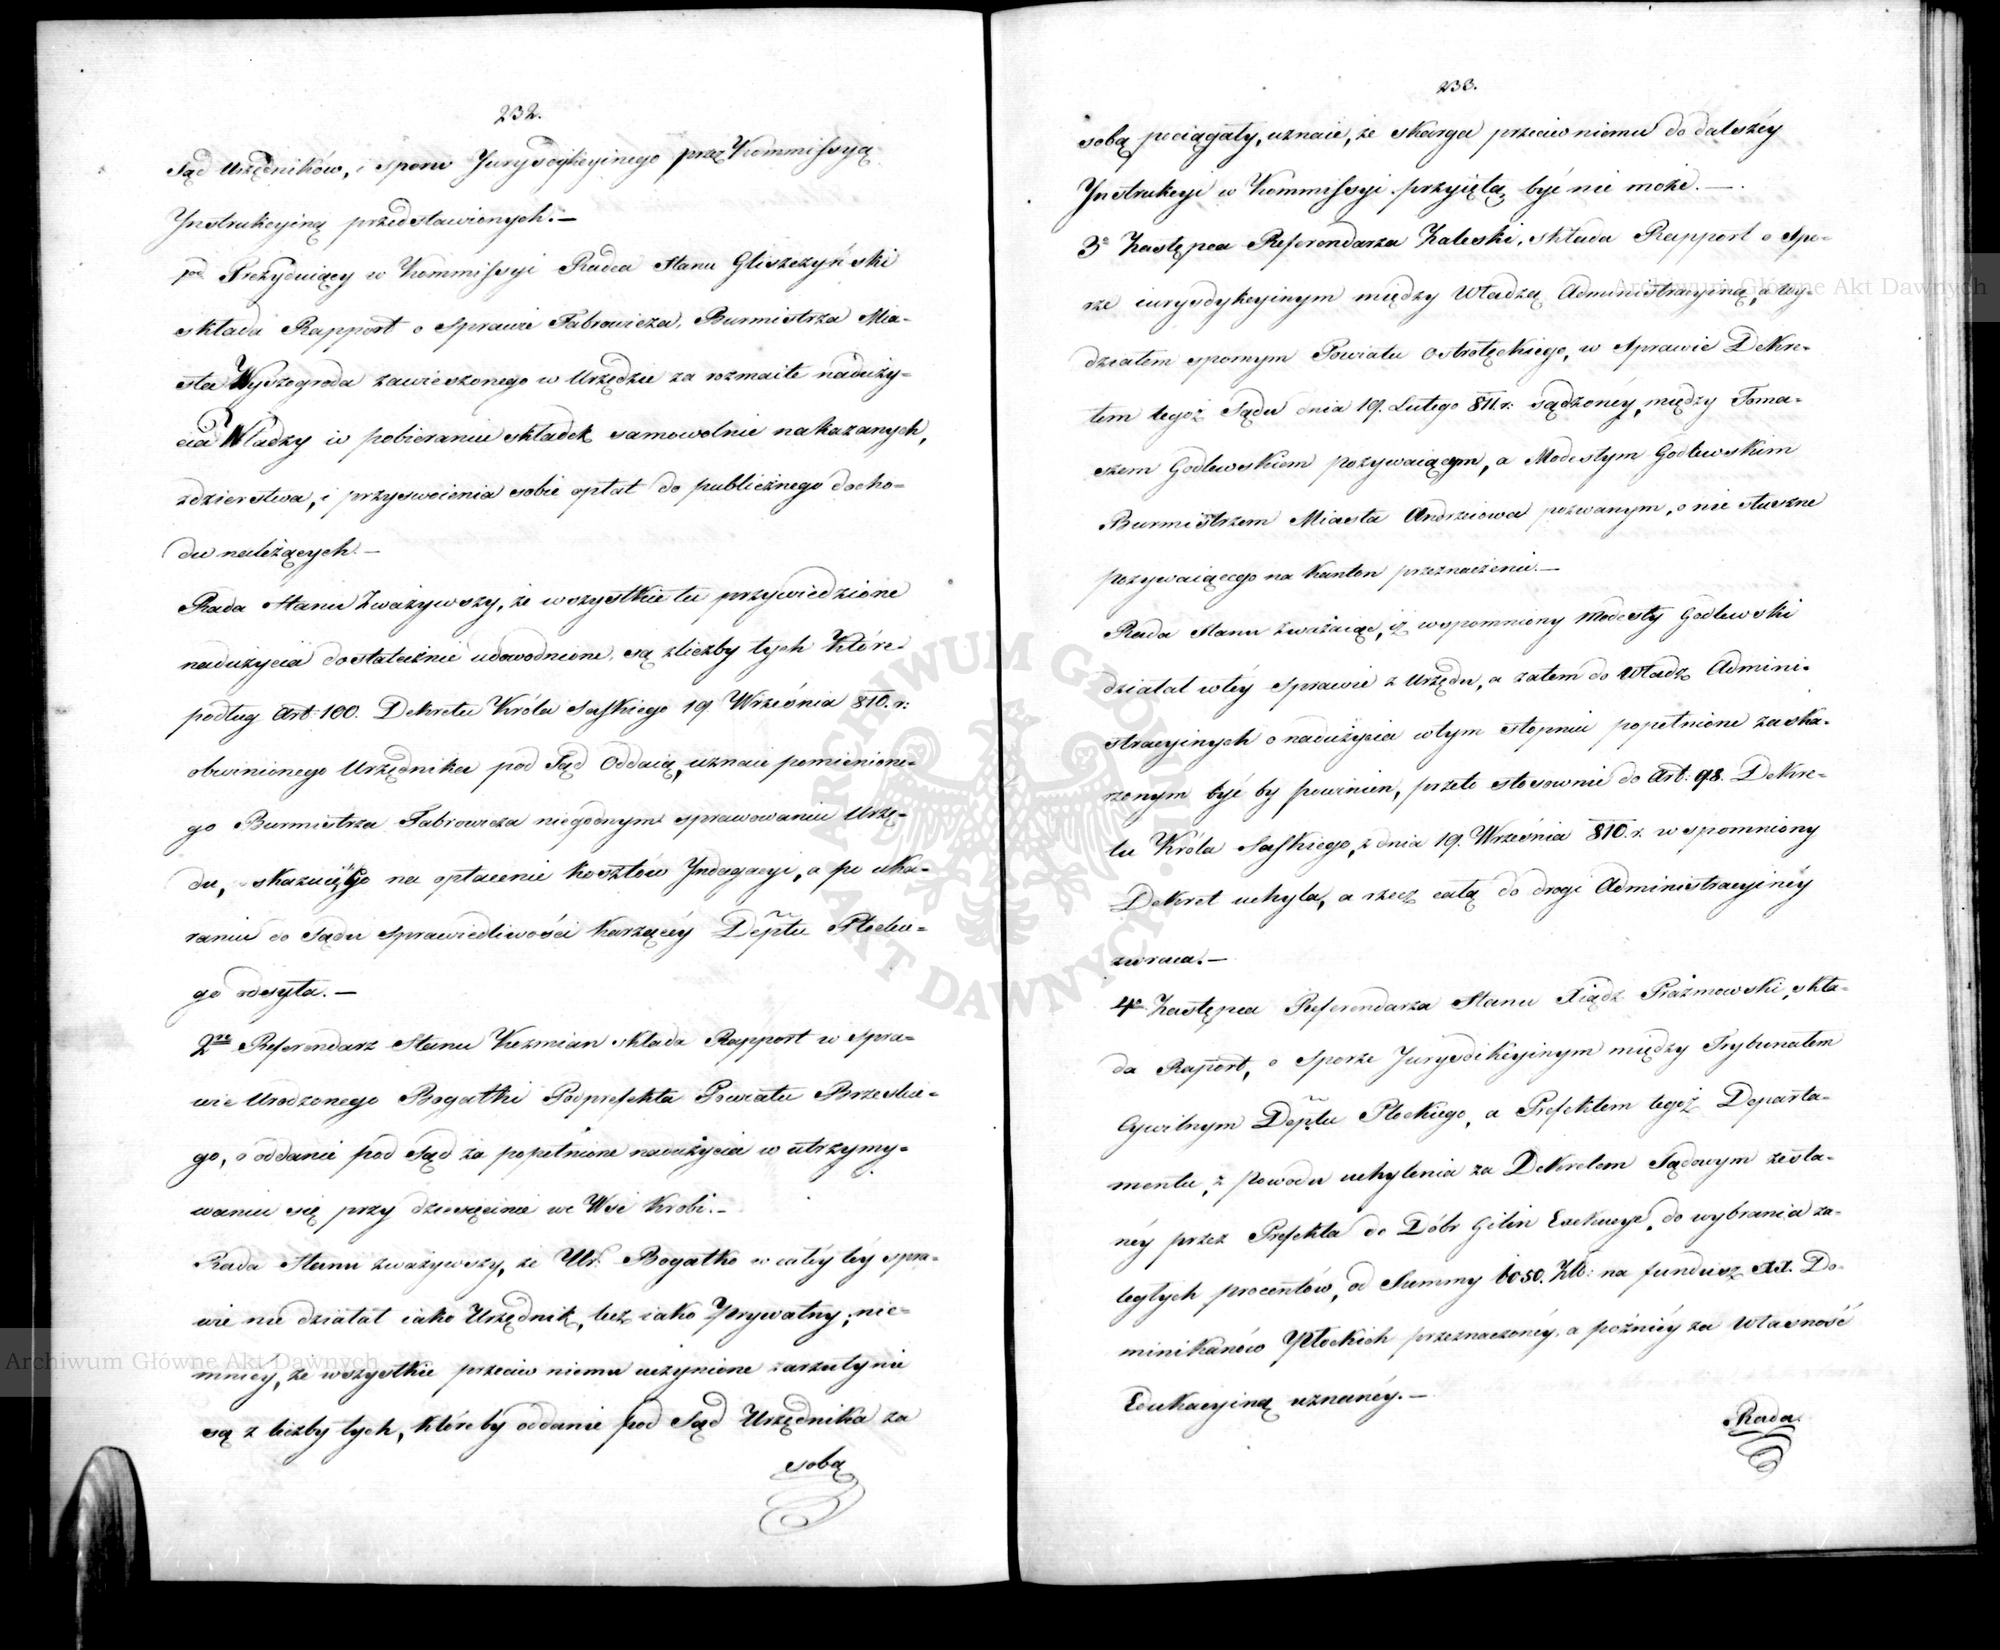 232.
Sąd Urzędników, i sporu Jurysdykcyinego przez Kommissyą
Instrukcyiną przedstawionych. —
Prezyduiący w Kommissyi Radca Stanu Gliszczyński
składa Rapport o Sprawie Fabrowicza, Burmistrza Mia-
sta Wyszogroda zawieszonego w Urzędzie za rozmaite naduży-
cia Władzy w pobieraniu składek samowolnie nakazanych,
zdzierstwa, i przyswoienia sobie opłat do publicznego docho-
du należących. —
Rada Stanu Zważywszy, że wszystkie tu przywiedzione
nadużycia dostatecznie udowodnione, są z liczby tych które
podług Art: 100. Dekretu Króla Saskiego 19 Września 810. r:
obwinionego Urzędnika pod Sąd Oddaią, uznaie pomienione-
go Burmistrza Fabrowicza niegodnym sprawowania Urzę-
du, skazuie Go na opłacenie kosztów Indagacyi, a po uka-
raniu do Sądu Sprawiedliwości Karzącéy Deptu Płockie-
go odsyła. —
2re Referendarz Stanu Kozmian składa Rapport w Spra-
wie Urodzonego Bogatki Podprefekta Powiatu Brzeskie-
go, o oddanie pod Sąd za popełnione nadużycia w utrzymy-
waniu się przy dziesięcinie we Wsi Krobi. —
Rada Stanu zważywszy, że Ur. Bogatko w całéy téy spra-
wie nie działał iako Urzędnik, lecz iako Prywatny; nie-
mniéy, że wszystkie przeciw niemu uczynione zarzuty nie
są z liczby tych, któreby oddanie pod Sąd Urzędnika za
sobą
233.
sobą pociągały, uznaie, że skarga przeciw niemu do dalszéy
Instrukcyi w Kommissyi przyiętą być nie może. —
3e Zastępca Referendarza Zaleski, składa Rapport o Spo-
rze iurysdykcyinym między Władzą Administracyiną, a Wy-
działem spornym Powiatu Ostrołęckiego, w Sprawie Dekre-
tem tegoż Sądu dnia 19. Lutego 811. r: sądzonéy, między Toma-
szem Godlewskiem pozywaiącym, a Modestym Godlewskim
Burmistrzem Miasta Andrzeiowa pozwanym, o nie słuszne
pozywaiącego na Kanton przeznaczenie. —
Rada Stanu zważaiąc, iż wspomniony Modesty Godlewski
działał w téy Sprawie z Urzędu, a zatem do Władz Admini-
stracyinych o nadużycia w tym stopniu popełnione zaska-
rzonym być by powinien, przeto stosownie do Art: 98. Dekre-
tu Króla Saskiego, z dnia 19. Września 810. r. wspomniony
Dekret uchyla, a rzecz całą do drogi Administracyinéy
zwraca. —
4e Zastępca Referendarza Stanu Xiądz Prażmowski, skła-
da Raport, o Sporze Jurysdikcyinym między Trybunałem
Cywilnym Deptu Płockiego, a Prefektem tegoż Departa-
mentu, z powodu uchylenia za Dekretem Sądowym zesła-
néy przez Prefekta do Dóbr Gilin Exekucyi, do wybrania za-
ległych procentów, od Summy 6050. Złt: na fundusz XX. Do-
minikanów Płockich przeznaczonéy, a poźniéy za Własność
Edukacyiną uznanéy. —
Rada
ARCHIWUM GŁÓWNE AKT DAWNYCH
Archiwum Główne Akt Dawnych
Archiwum Główne Akt Dawnych